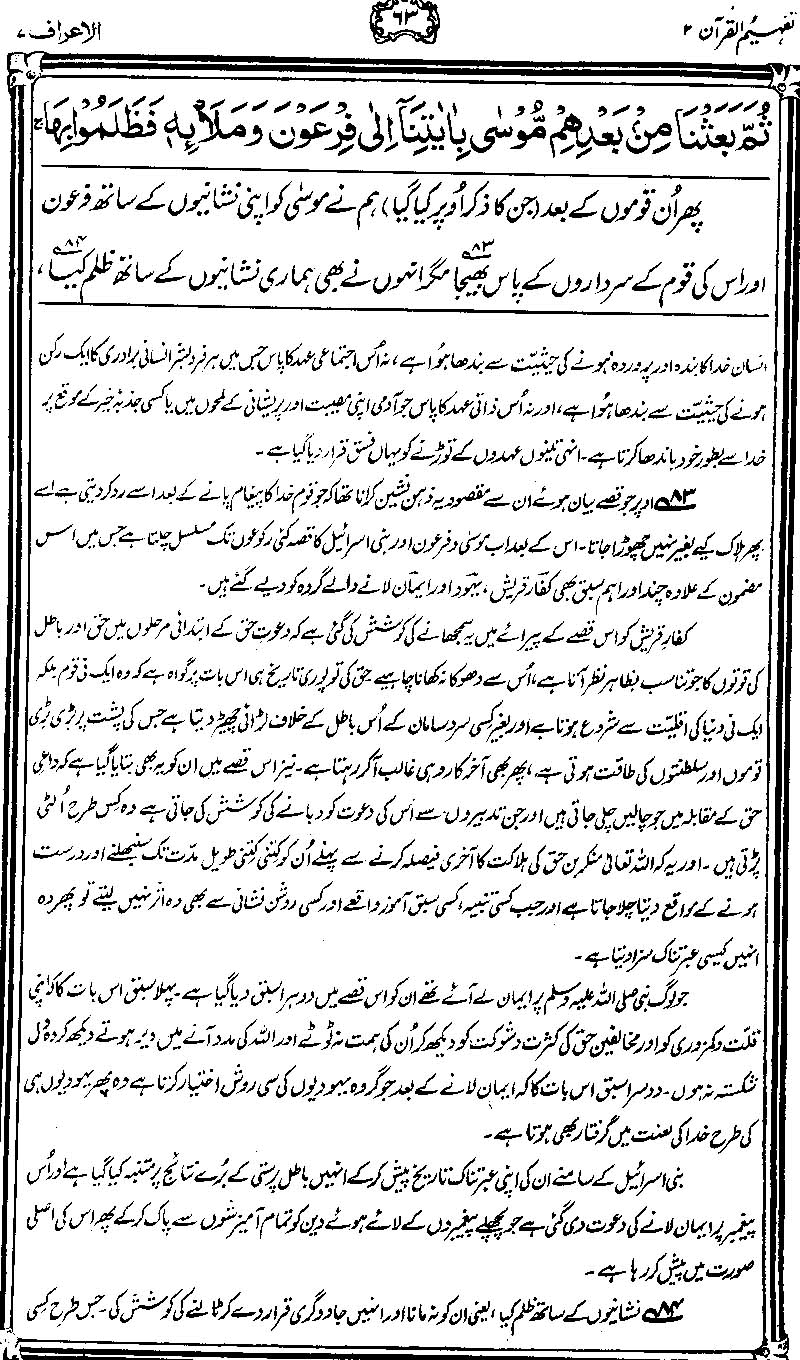 تفہیم القرآن ۲
۶۳
الاعراف ۷
ثُمَّ بَعَثْنَا مِنْۢ بَعْدِهِمْ مُّوْسٰى بِاٰيٰتِنَاۤ اِلٰى فِرْعَوْنَ وَ مَلَا۠ئِهٖ فَظَلَمُوْا بِهَا ۚ
پھر اُن قوموں کے بعد (جن کا ذکر اُوپر کیا گیا) ہم نے موسیٰ کو اپنی نشانیوں کے ساتھ فرعون
اور اس کی قوم کے سرداروں کے پاس بھیجا۸۳ مگر انہوں نے بھی ہماری نشانیوں کے ساتھ ظلم کیا۸۴،
انسان خدا کا بندہ اور پروردہ ہونے کی حیثیت سے بندھا ہُوا ہے، نہ اُس اجتماعی عہد کا پاس جس میں ہر فرد بشر انسانی برادری کا ایک رکن
ہونے کی حیثیت سے بندھا ہُوا ہے، اور نہ اُس ذاتی عہد کا پاس جو آدمی اپنی مصیبت اور پریشانی کے لمحوں میں یا کسی جذبۂ خیر کے موقع پر
خدا سے بطور خود باندھا کرتا ہے۔ انہی تینوں عہدوں کے توڑنے کو یہاں فسق قرار دیا گیا ہے۔
۸۳ اوپر جو قصے بیان ہوئے ان سے مقصود یہ ذہن نشین کرانا تھا کہ جو قوم خدا کا پیغام پانے کے بعد اسے رد کر دیتی ہے اسے
پھر ہلاک کیے بغیر نہیں چھوڑا جاتا۔ اس کے بعد اب موسیٰ و فرعون اور بنی اسرائیل کا قصہ کئی رکوعوں تک مسلسل چلتا ہے جس میں اس
مضمون کے علاوہ چند اور اہم سبق بھی کفار قریش، یہود اور ایمان لانے والے گروہ کو دیے گئے ہیں۔
کفار قریش کو اس قصے کے پیرائے میں یہ سمجھانے کی کوشش کی گئی ہے کہ دعوتِ حق کے ابتدائی مرحلوں میں حق اور باطل
کی قوتوں کا جو تناسب بظاہر نظر آتا ہے، اُس سے دھوکا نہ کھانا چاہیے۔ حق کی تو پوری تاریخ ہی اس بات پر گواہ ہے کہ وہ ایک فی قوم بلکہ
ایک فی دنیا کی اقلیت سے شروع ہوتا ہے اور بغیر کسی سروسامان کے اُس باطل کے خلاف لڑائی چھیڑ دیتا ہے جس کی پشت پر بڑی بڑی
قوموں اور سلطنتوں کی طاقت ہوتی ہے، پھر بھی آخر کار وہی غالب آ کر رہتا ہے۔ نیز اس قصے میں ان کو یہ بھی بتایا گیا ہے کہ داعیِ
حق کے مقابلہ میں جو چالیں چلی جاتی ہیں اور جن تدبیروں سے اُس کی دعوت کو دبانے کی کوشش کی جاتی ہے وہ کس طرح اُلٹی
پڑتی ہیں۔ اور یہ کہ اللہ تعالیٰ منکرین حق کی ہلاکت کا آخری فیصلہ کرنے سے پہلے اُن کو کتنی کتنی طویل مدّت تک سنبھلنے اور درست
ہونے کے مواقع دیتا چلا جاتا ہے اور جب کسی تنبیہ، کسی سبق آموز واقعے اور کسی روشن نشانی سے بھی وہ اثر نہیں لیتے تو پھر وہ
انہیں کیسی عبرتناک سزا دیتا ہے۔
جو لوگ نبی صلی اللہ علیہ وسلم پر ایمان لے آئے تھے ان کو اس قصے میں دوہرا سبق دیا گیا ہے۔ پہلا سبق اس بات کا کہ اپنی
قلت و کمزوری کو اور مخالفین حق کی کثرت و شوکت کو دیکھ کر اُن کی ہمت نہ ٹوٹے اور اللہ کی مدد آنے میں دیر ہوتے دیکھ کر وہ دل
شکستہ نہ ہوں۔ دوسرا سبق اس بات کا کہ ایمان لانے کے بعد جو گروہ یہودیوں کی سی روش اختیار کرتا ہے وہ پھر یہودیوں ہی
کی طرح خدا کی لعنت میں گرفتار بھی ہوتا ہے۔
بنی اسرائیل کے سامنے ان کی اپنی عبرتناک تاریخ پیش کر کے انہیں باطل پرستی کے بُرے نتائج پر متنبہ کیا گیا ہے اور اُس
پیغمبر پر ایمان لانے کی دعوت دی گئی ہے جو پچھلے پیغمبروں کے لائے ہوئے دین کو تمام آمیزشوں سے پاک کر کے پھر اس کی اصلی
صورت میں پیش کر رہا ہے۔
۸۴ نشانیوں کے ساتھ ظلم کیا، یعنی ان کو نہ مانا اور انہیں جادوگری قرار دے کر ٹالنے کی کوشش کی۔ جس طرح کسی